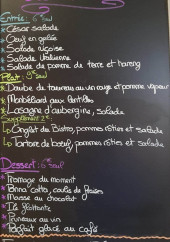 Entrée : 6€ seul
César salade
Oeuf en gelée
Salade niçoise
Salade Italienne
Salade de pomme de terre et hareng
Plat : 9€ seul
Daube de taureau au vin rouge et pomme vapeur
Montbéliard aux lentilles
Lasagne d'aubergine, salade
Supplément 2€ :
Onglet du Bistro, pommes rôties et salade
Tartare de boeuf, pommes rôties et salade
Dessert : 6€ seul
Fromage du moment
Panna Cotta, coulis de fraises
Mousse au chocolat
Île flottante
Pruneaux au vin
Parfait glacé au café